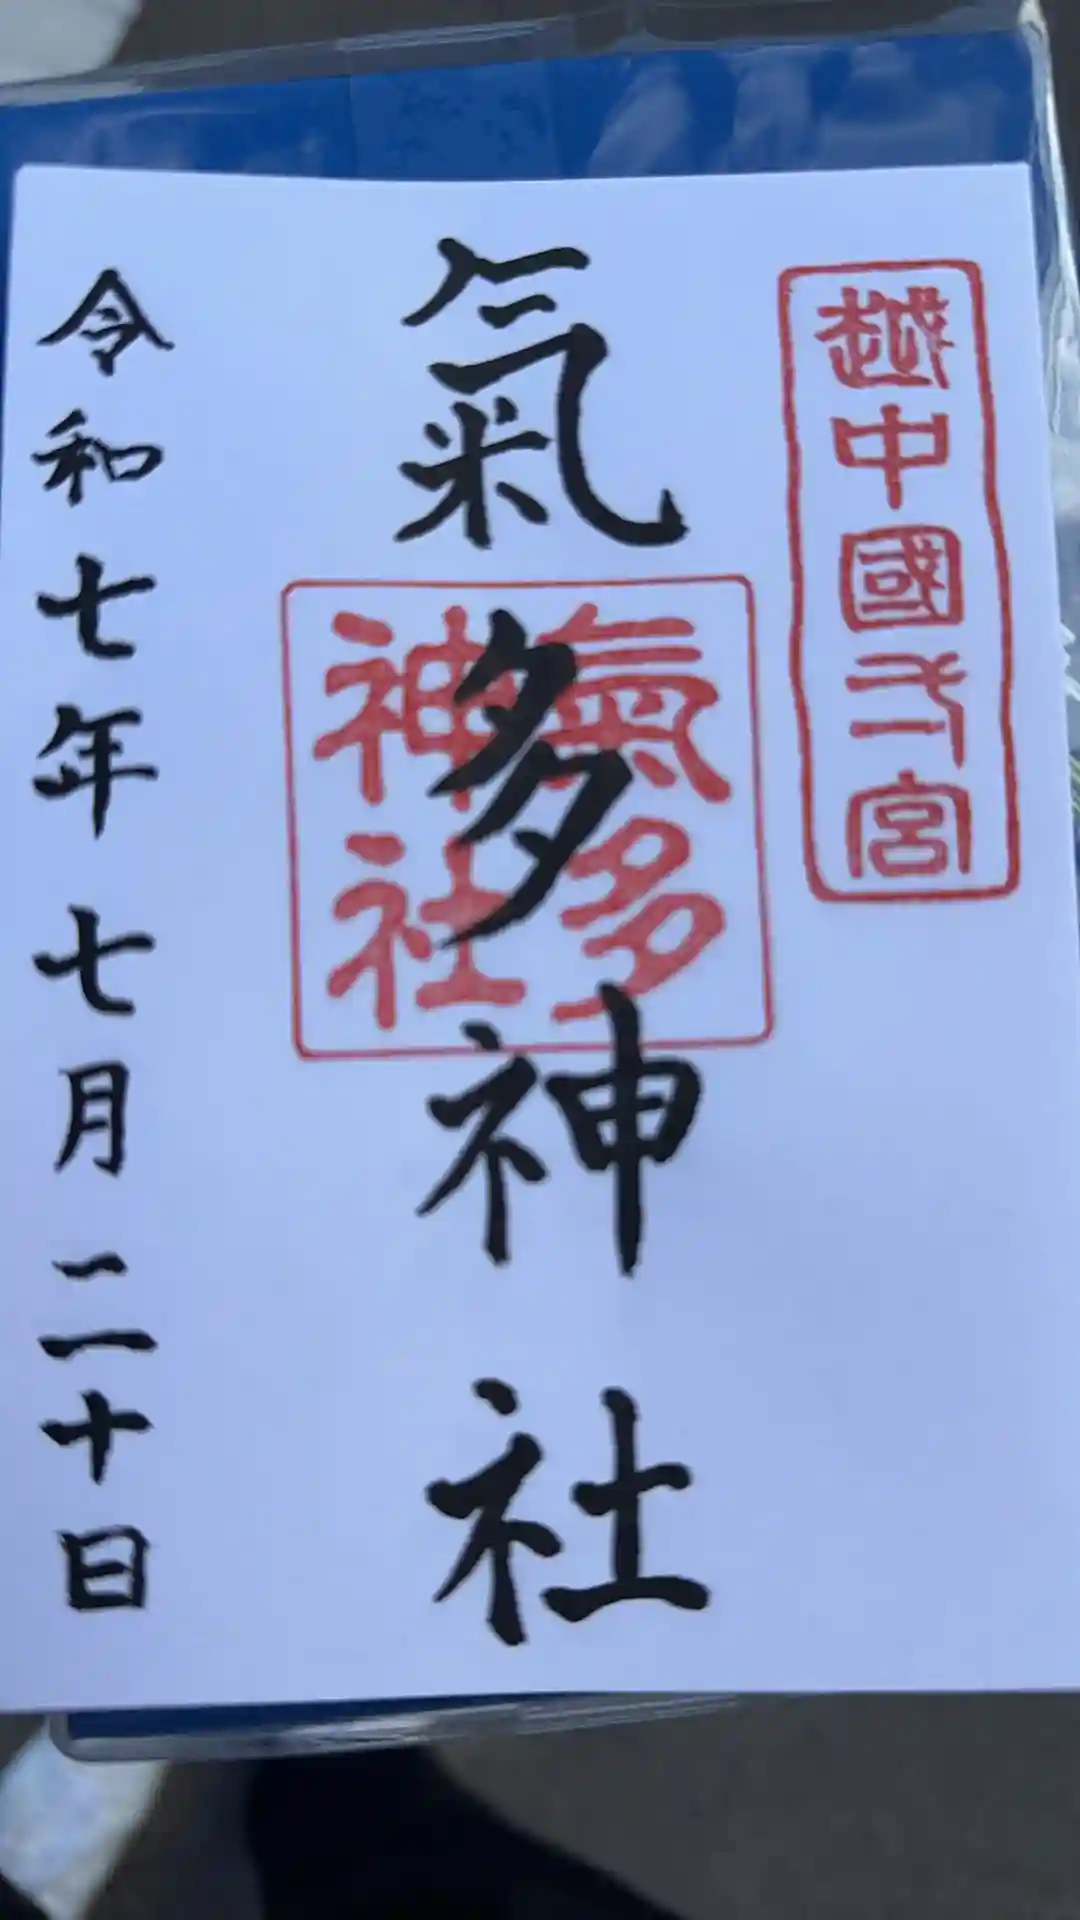 越中國弌宮
氣多神社
氣多神社
令和七年七月二十日